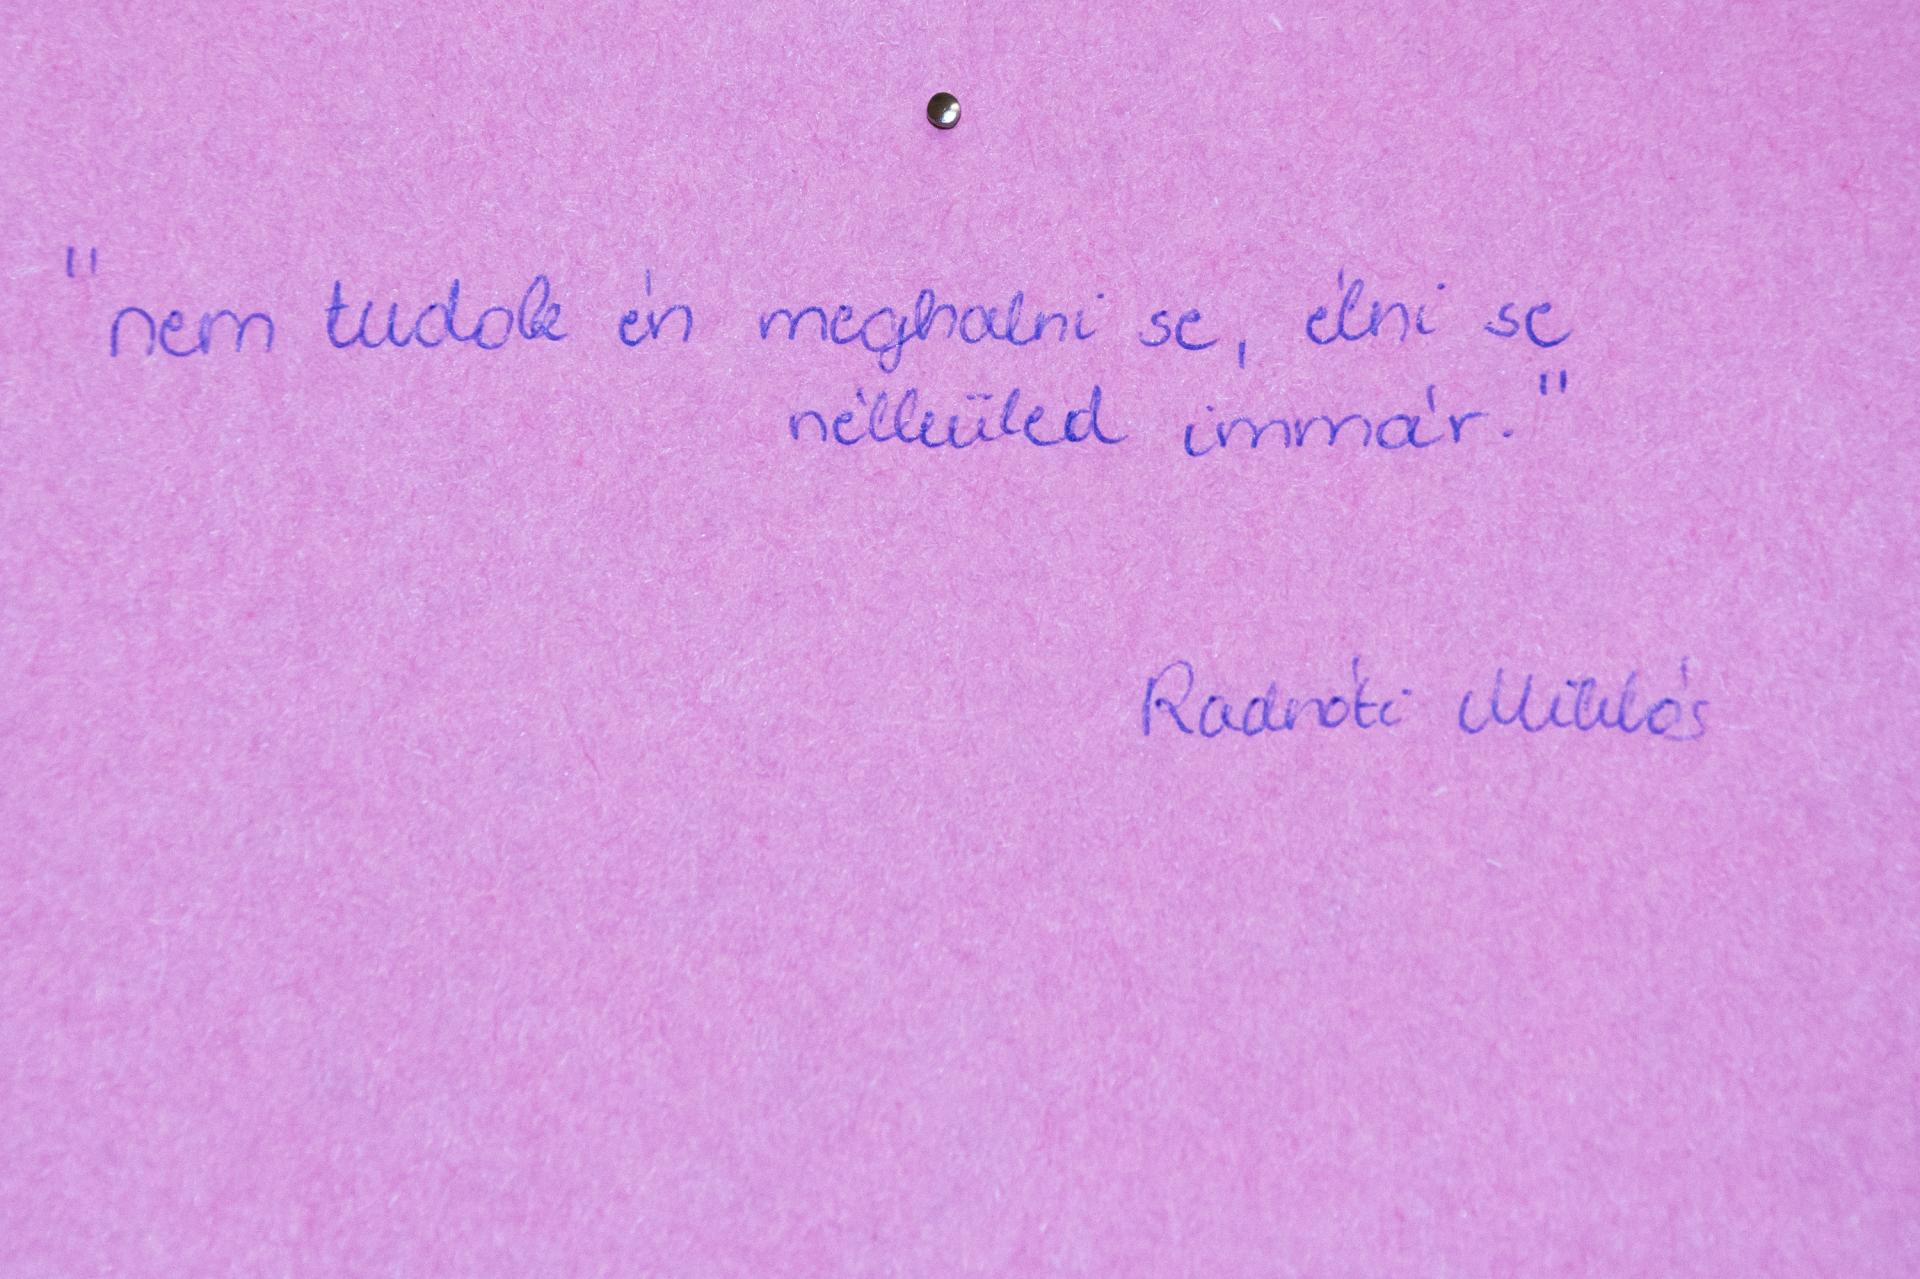 "nem tudok én meghalni se, élni se
nélküled immár."
Radnóti Miklós